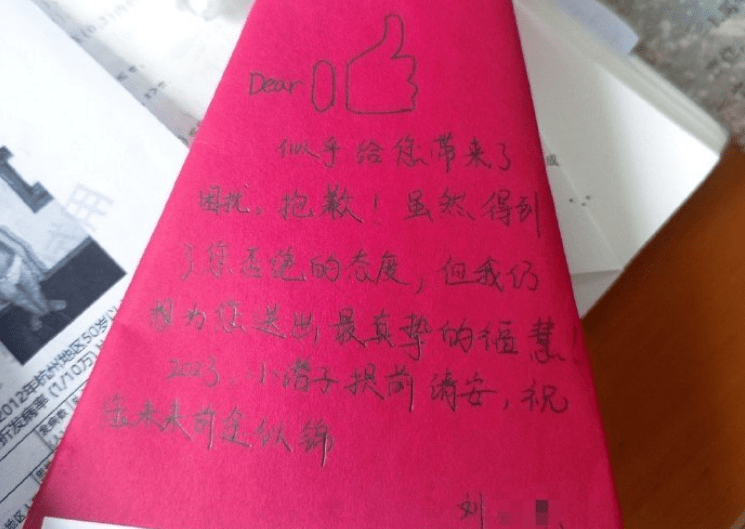 Dear
似乎给您带来了
困扰,抱歉!虽然得到
了您拒绝的态度,但我仍
想为您送出最真挚的
2023、小潜子提前请安,祝
您未来前途似锦
刘
2012年杭州地区50岁以
折发病率(1/10万)